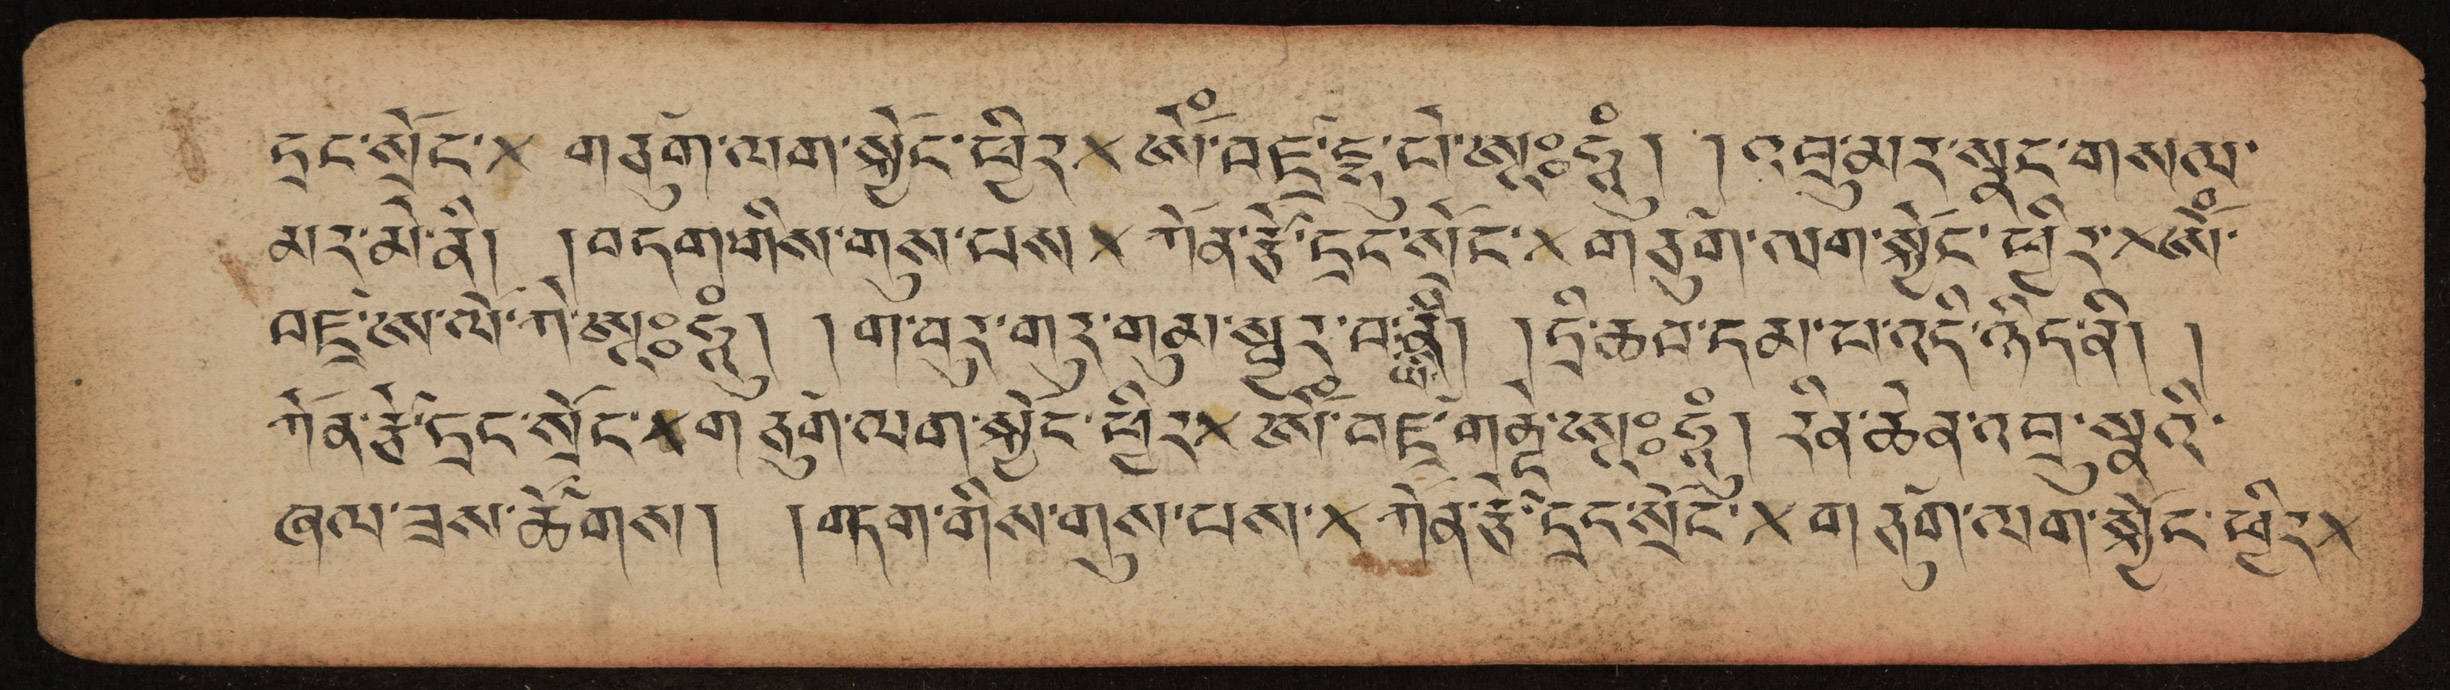 དྲང་སྲོང་× གཙུག་ལག་སྐྱོང་ཕྱིར× ཨོཾ་བཛྲ་དྷུ་པེ་ཨཱཿཧཱུྃ། །འབྲུ་མར་སྣང་གསལ་
མར་མེ་ནི། །བདག་གིས་གུས་པས× ཀོན་རྩེ་དྲང་སྲོང་× གཙུག་ལག་སྐྱོང་ཕྱིར་×ཨོཾ་
བཛྲ་ཨ་ལོ་ཀེ་ཨཱཿཧཱུྃ། །ག་བུར་གུར་གུམ་སྦྱར་བ་ཡི། །དྲི་ཆབ་དམ་པ་འདི་ཉིད་ནི། །
ཀོན་རྩེ་དྲང་སྲོང་×གཙུག་ལག་སྐྱོང་ཕྱིར× ཨོཾ་བཛྲ་གནྡྷེ་ཨཱཿཧཱུྃ། རིན་ཆེན་འབྲུ་སྣའི་
ཞལ་ཟས་ཚོགས། །བདག་གིས་གུས་པས་× ཀོན་རྩེ་དྲང་སྲོང་× གཙུག་ལག་སྐྱོང་ཕྱིར×